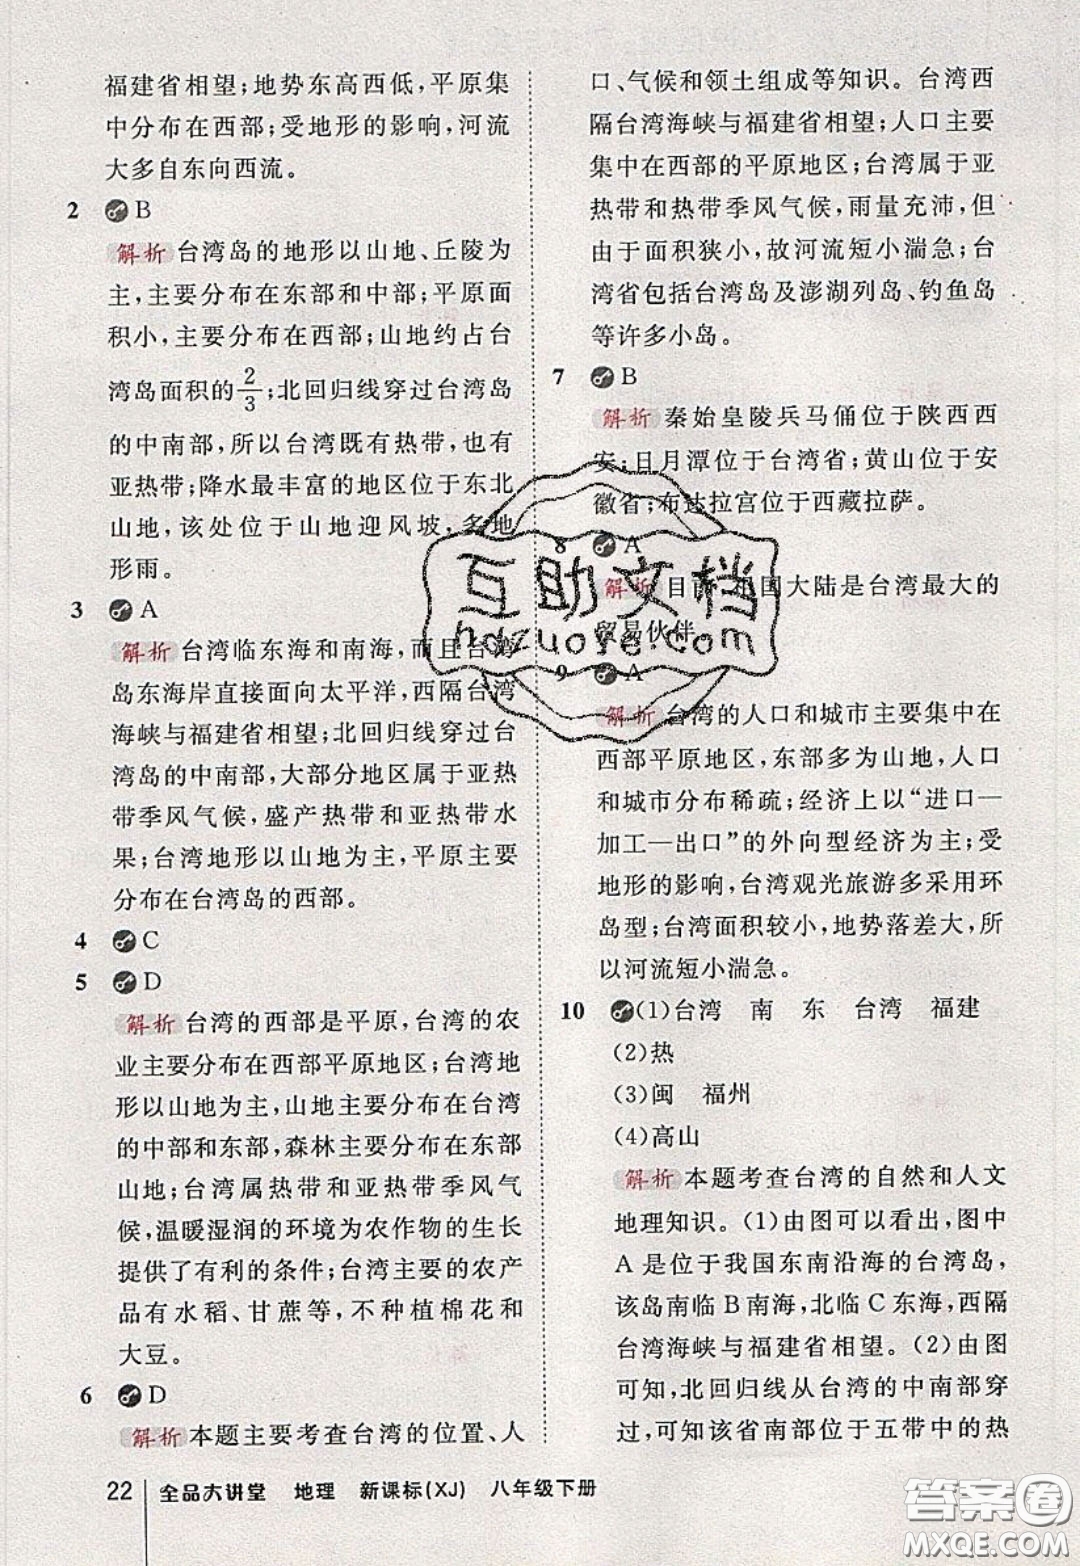 福建省相望;地势东高西低,平原集
中分布在西部;受地形的影响,河流
大多自东向西流。
2 B
解析 台湾岛的地形以山地、丘陵为
主,主要分布在东部和中部;平原面
积小,主要分布在西部;山地约占台
湾岛面积的2/3;北回归线穿过台湾岛
的中南部,所以台湾既有热带,也有
亚热带;降水最丰富的地区位于东北
山地,该处位于山地迎风坡,多地
形雨。
3 A
解析 台湾临东海和南海,而且台湾
岛东海岸直接面向太平洋,西隔台湾
海峡与福建省相望;北回归线穿过台
湾岛的中南部,大部分地区属于亚热
带季风气候,盛产热带和亚热带水
果;台湾地形以山地为主,平原主要
分布在台湾岛的西部。
4 C
5 D
解析 台湾的西部是平原,台湾的农
业主要分布在西部平原地区;台湾地
形以山地为主,山地主要分布在台湾
的中部和东部,森林主要分布在东部
山地;台湾属热带和亚热带季风气
候,温暖湿润的环境为农作物的生长
提供了有利的条件;台湾主要的农产
品有水稻、甘蔗等,不种植棉花和
大豆。
6 D
解析 本题主要考查台湾的位置、人
口、气候和领土组成等知识。台湾西
隔台湾海峡与福建省相望;人口主要
集中在西部的平原地区;台湾属于亚
热带和热带季风气候,雨量充沛,但
由于面积狭小,故河流短小湍急;台
湾省包括台湾岛及澎湖列岛、钓鱼岛
等许多小岛。
7 B
解析 秦始皇陵兵马俑位于陕西西
安;日月潭位于台湾省;黄山位于安
徽省;布达拉宫位于西藏拉萨。
8 A
解析 目前,祖国大陆是台湾最大的
贸易伙伴。
9 A
解析 台湾的人口和城市主要集中在
西部平原地区,东部多为山地,人口
和城市分布稀疏;经济上以“进口—
加工—出口”的外向型经济为主;受
地形的影响,台湾观光旅游多采用环
岛型;台湾面积较小,地势落差大,所
以河流短小湍急。
10 (1)台湾 南 东 台湾 福建
(2)热
(3)闽 福州
(4)高山
解析 本题考查台湾的自然和人文
地理知识。(1)由图可以看出,图中
A是位于我国东南沿海的台湾岛,
该岛南临B南海,北临C东海,西隔
台湾海峡与福建省相望。(2)由图
可知,北回归线从台湾的中南部穿
过,可知该省南部位于五带中的热
22 全品大讲堂 地理 新课标(XJ) 八年级下册
互助文档
hdzuoye.com
答案圈
MXQE.COM